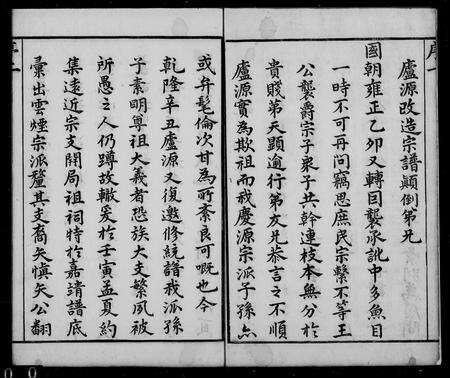 盧源改造宗譜顛倒第兄
國朝雍正乙卯又轉囙襲承訛中多魚目
一時不可再問竊思庶民宗繫不等王
公襲爵宗子衆子共幹連枝本無分於
貴賤第天顯逾行第友兄恭言之不順
盧源實為欺祖而我慶源宗派子孫亦
或弁髦倫次甘為所紊良可嘅也今
乾隆辛丑盧源又復邀修統譜我派孫
子素明尊祖大義者恐族大支繁夙被
所愚之人仍蹲故轍爰於壬寅孟夏約
集遠近宗支開局祖祠特於嘉靖譜底
彙出雲煙宗派釐其支裔矢慎矢公翻